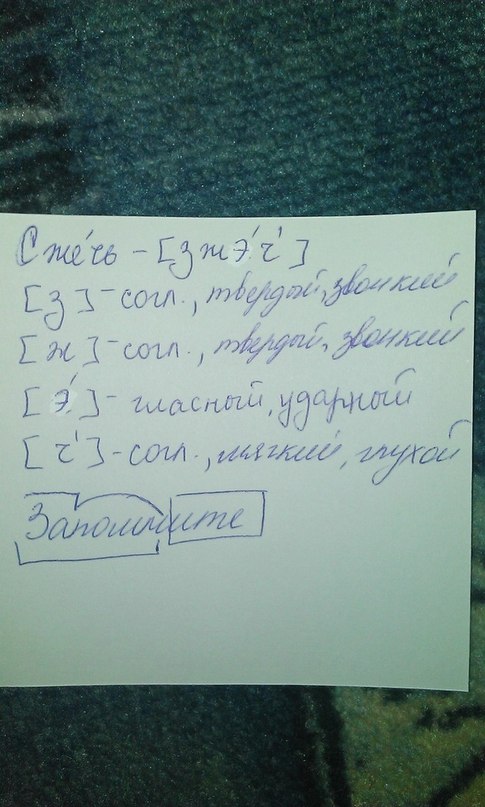 Сже́чь – [зжэ́ч']
[з] – согл., твердый, звонкий
[ж] – согл., твердый, звонкий
[э́] – гласный, ударный
[ч'] – согл., мягкий, глухой
Запомните